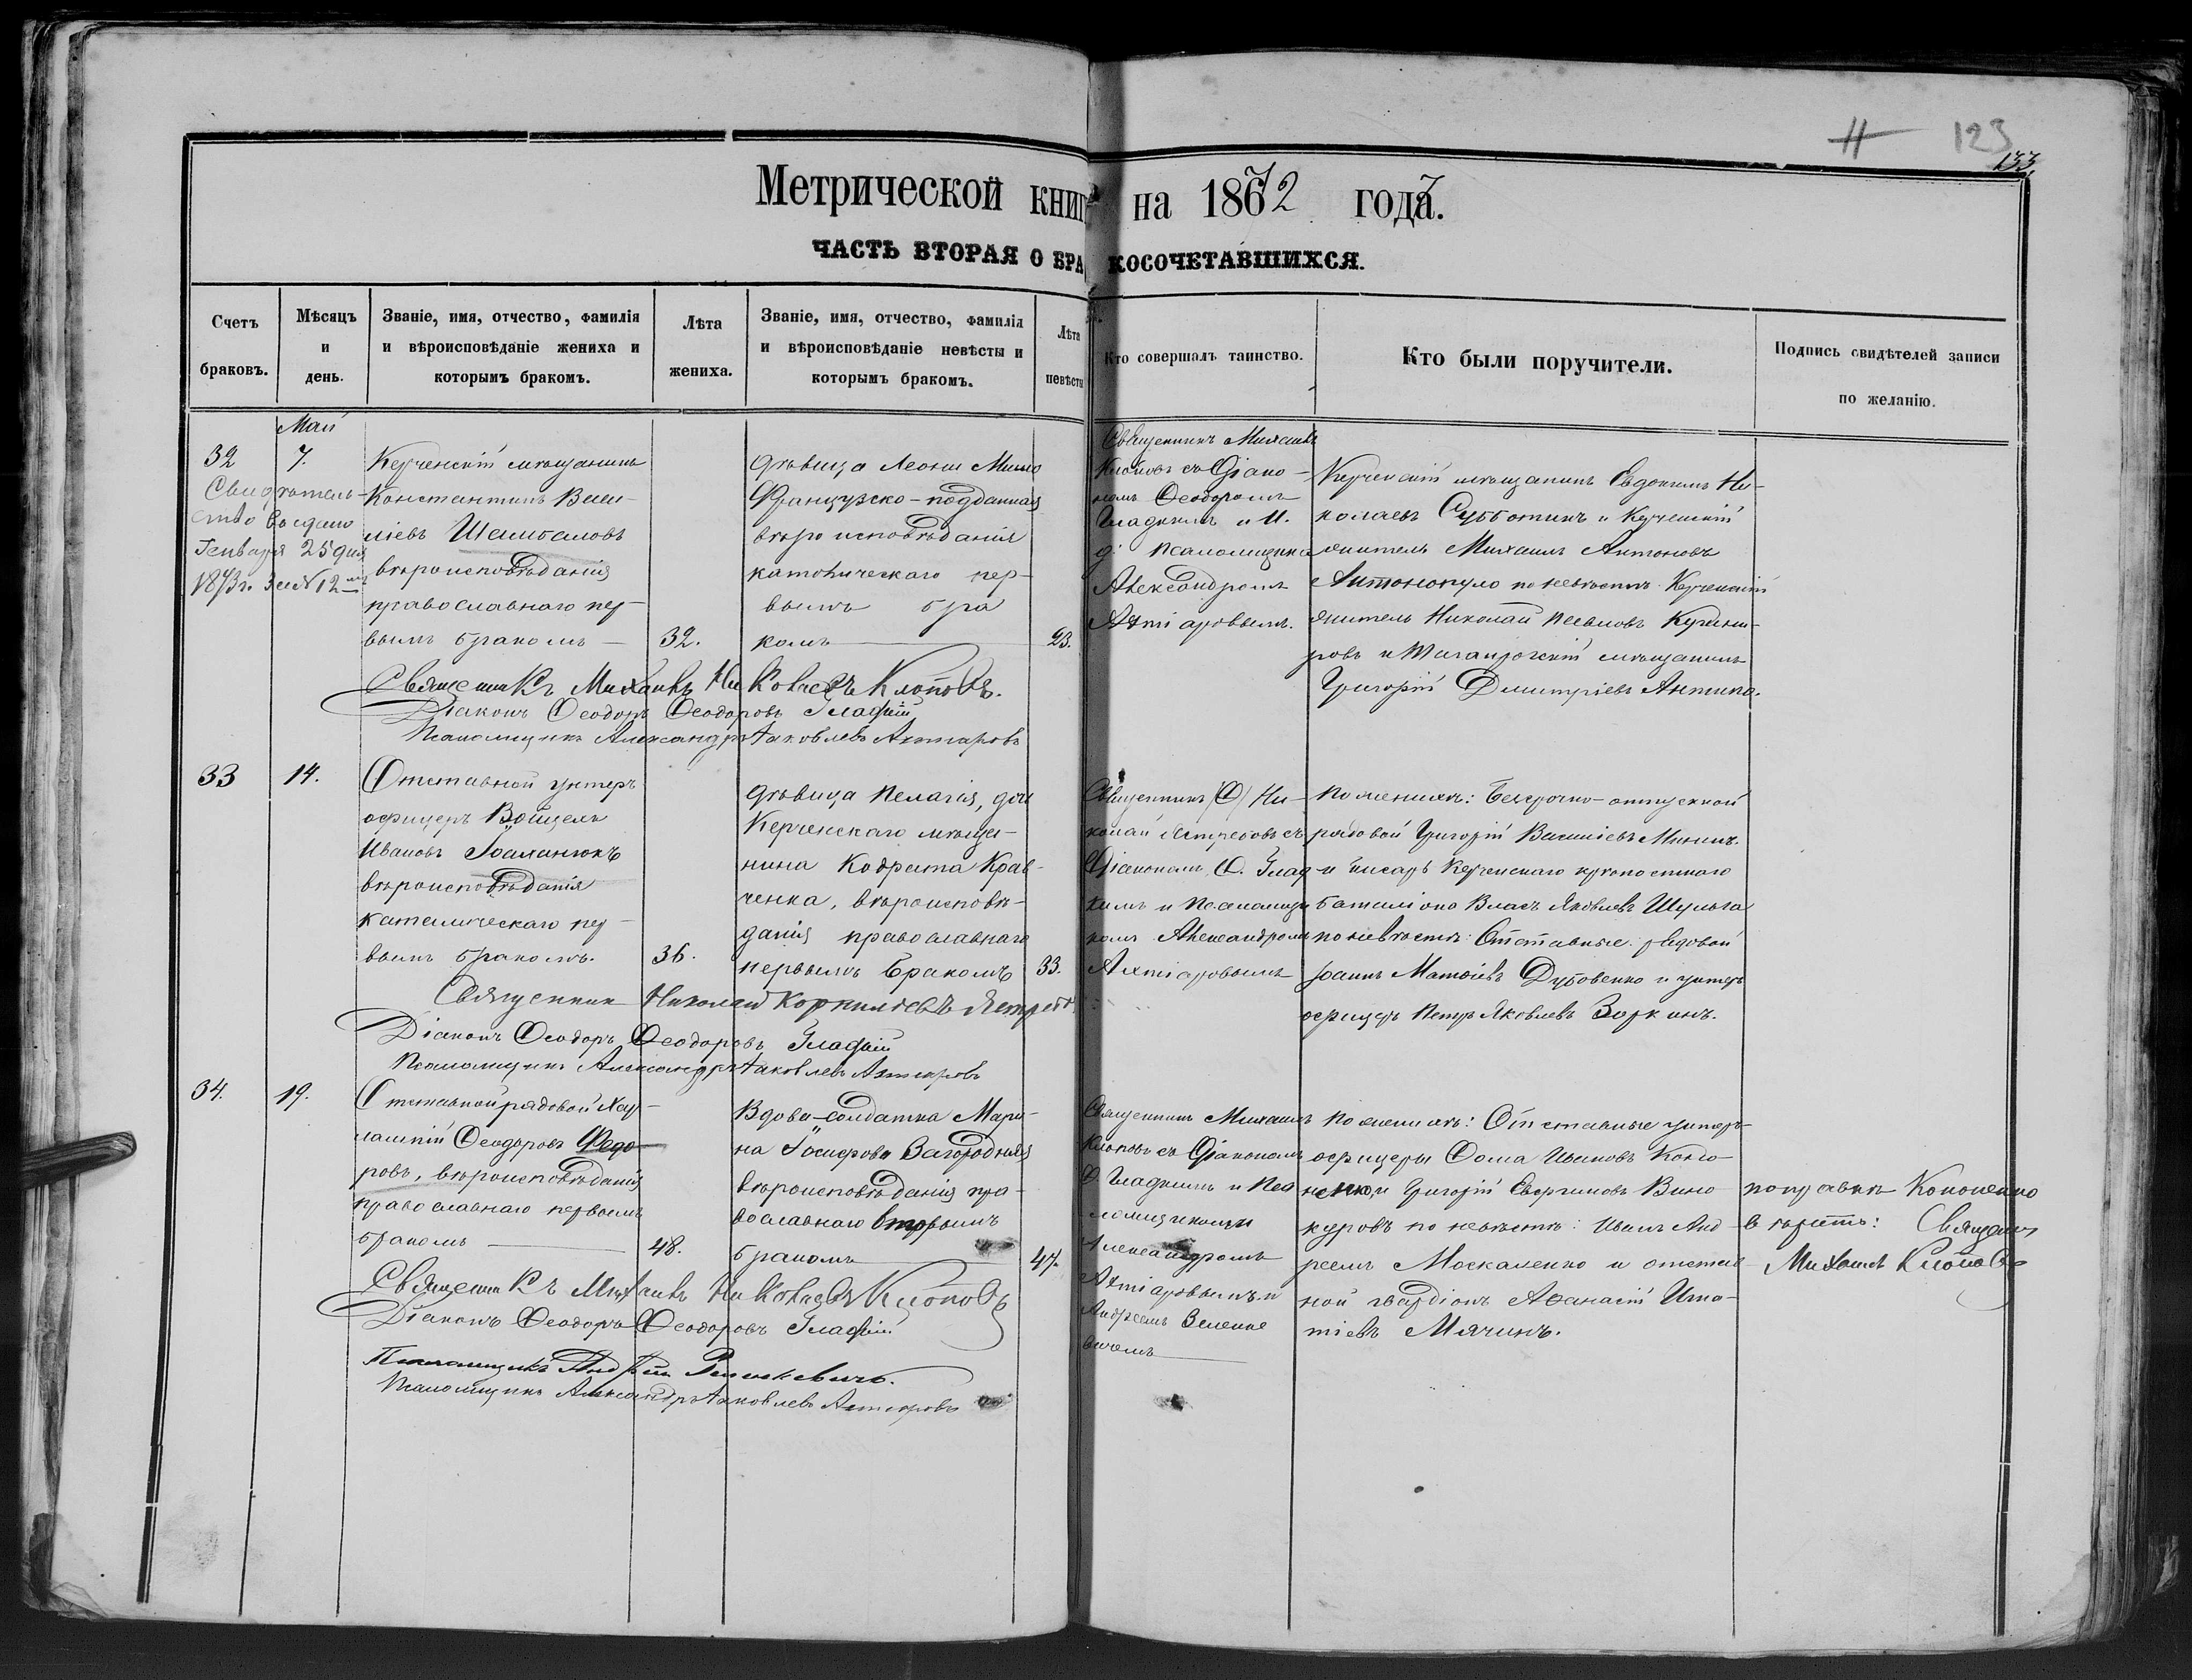 123
133.
Метрической книги на 1872 года.
ЧАСТЬ ВТОРАЯ О БРАКОСОЧЕТАВШИХСЯ.
Счетъ браковъ.
Мѣсяцъ и день.
Званіе, имя, отчество, фамилія и вѣроисповѣданіе жениха и которымъ бракомъ.
Лѣта жениха.
Званіе, имя, отчество, фамилія и вѣроисповѣданіе невѣсты и которымъ бракомъ.
Лѣта невѣсты
Кто совершалъ таинство.
Кто были поручители.
Подпись свидѣтелей записи по желанію.
Май
32
7.
Свидѣтель-
ство выдано
Генваря 25 дня
1873 г. за № 12
Керченскій мѣщанинъ
Константинъ Васи-
ліевъ
вѣроисповѣданія
православнаго пер-
вымъ бракомъ
32.
дѣвица
Французско-подданная
вѣроисповѣданія
католическаго пер-
вымъ бра
комъ
23.
Священникъ Михаилъ
Клоповъ съ Діако-
номъ Ѳеодоромъ
Гладкимъ и И.
д. псаломщика
Александромъ
Ахтіаровымъ.
Керченскій мѣщанинъ Евдокимъ Ни-
колаевъ Субботинъ и Керченскій
житель Михаилъ Антоновъ
Антонопуло по невѣстѣ: Керченскій
житель Николай
и Таганрогскій мѣщанинъ
Григорій Димитріевъ
Священникъ Михаилъ Николаевъ Клоповъ.
Діаконъ Ѳеодоръ Ѳеодоровъ Гладкій
Псаломщикъ Александръ Іаковлевъ Ахтіаровъ
33
14.
Отставной унтеръ
офицеръ Войцехъ
Ивановъ
вѣроисповѣданія
католическаго пер-
вымъ бракомъ.
36.
дѣвица Пелагія, дочь
Керченскаго мѣща-
нина Кодрата Крав-
ченка, вѣроисповѣ-
данія православнаго
первымъ бракомъ
33.
Священникъ Ни-
колай Ястребовъ съ
Діакономъ Ѳ. Глад-
кимъ и Псаломщи
комъ Александромъ
Ахтіаровымъ
По женихѣ: Безсрочно-отпускной
рядовой Григорій Василіевъ Мининъ.
и писарь Керченскаго крѣпостнаго
баталіона Власъ Яковлевъ Шульга
по невѣстѣ: Отставные: рядовой
Іоаннъ Матвіевъ Дубовенко и унтеръ
офицеръ Петръ Яковлевъ Зоркинъ.
Священникъ Николай Корниліевъ
Діаконъ Ѳеодоръ Ѳеодоровъ Гладкій
Псаломщикъ Александръ Іаковлевъ Ахтіаровъ
34.
19.
Отставной рядовой Хар-
лампій Ѳеодоровъ Ѳедо-
ровъ, вѣроисповѣданія
православнаго первымъ
бракомъ
48.
Вдова-солдатка Мари-
на Іосифова Загородняя
вѣроисповѣданія пра-
вославнаго вторымъ
бракомъ
47.
Священникъ Михаилъ
Клоповъ съ Діакономъ
Ѳ. Гладкимъ и Пса
ломщиками
Александромъ
Ахтіаровымъ и
Андреемъ
По женихѣ: Отставные унтеръ-
офицеры Ѳома Ивановъ Коно
ненко, и Григорій Вино-
куровъ по невѣстѣ: Иванъ Анд-
реевъ Москаленко и отстав-
ной Аѳанасій Игна-
тіевъ Мячинъ.
поправкѣ Кононенко
вѣрить: Священникъ
Михаилъ Клоповъ
Священникъ Михаилъ Николаевъ Клоповъ
Діаконъ Ѳеодоръ Ѳеодоровъ Гладкій
Псаломщикъ Андрей
Псаломщикъ Александръ Іаковлевъ Ахтіаровъ